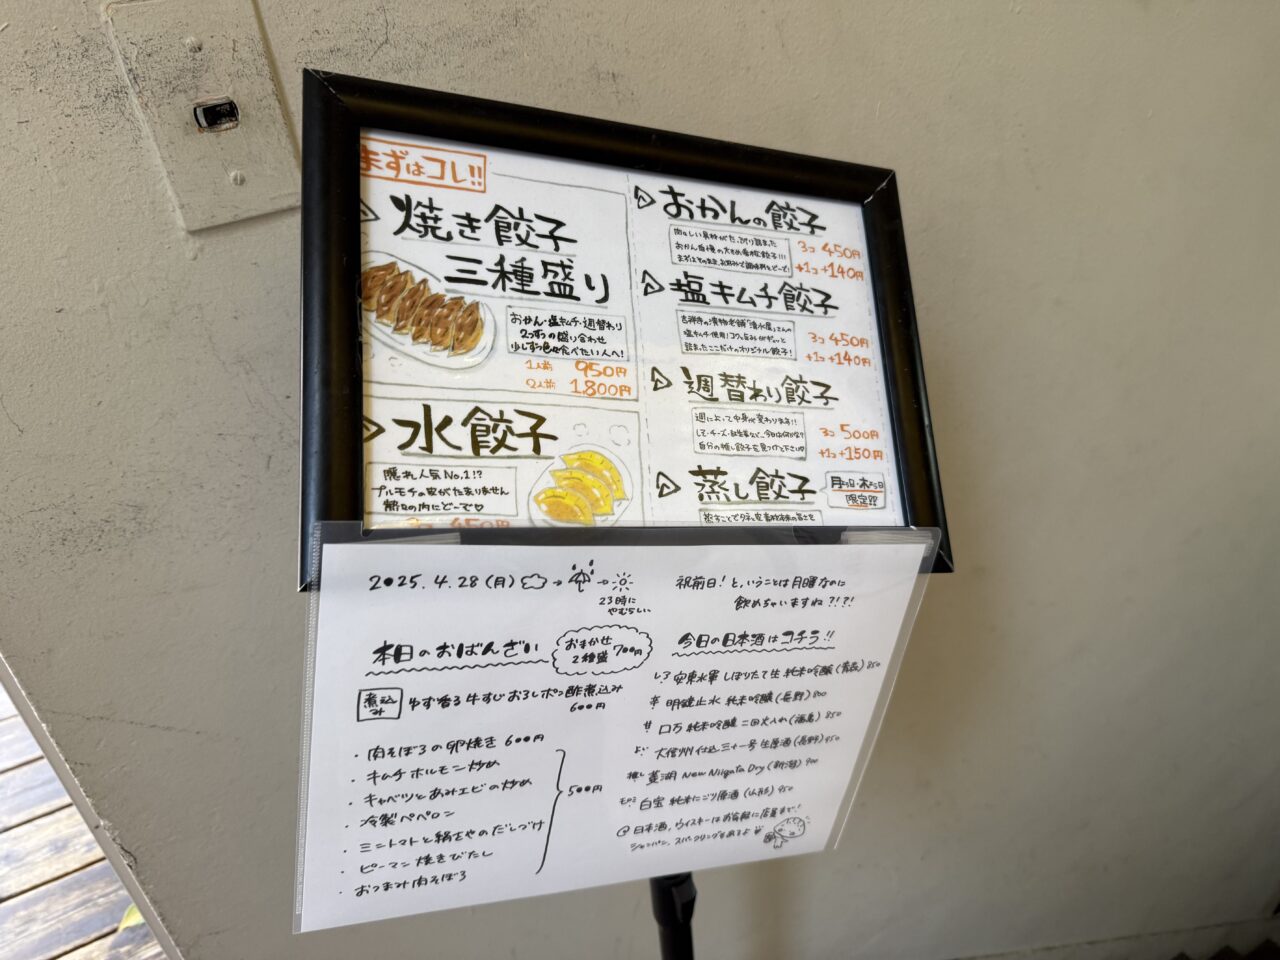 まずはコレ!!
焼き餃子
三種盛り
おかん・塩キムチ・週替わり
2つずつの盛り合わせ
少しずつ色々食べたい人へ!
1人前 950円
2人前 1,800円
水餃子
隠れ人気No.1!?
プルモチの皮がたまりません
おかんの餃子
3コ 450円
+1コ +140円
塩キムチ餃子
吉祥寺の漬物老舗「清水屋」さんの
塩キムチ使用!コクと旨みがギュッと
詰まったここだけのオリジナル餃子!
3コ 450円
+1コ +140円
週替わり餃子
週によって中身が変わります!!
3コ 500円
+1コ +150円
蒸し餃子
限定!!
2025.4.28(月)
23時に
やむらしい
祝前日!と、いうことは月曜なのに
飲めちゃいますね?!?!
本日のおばんざい
おまかせ
2種盛
700円
煮込み
ゆず香る牛すじおろしポン酢煮込み
600円
・肉そぼろの卵焼き 600円
・キムチホルモン炒め
・キャベツとあみエビの炒め
・冷製ペペロン
・ミニトマトと絹さやのだしづけ
・ピーマン焼きびたし
・おつまみ肉そぼろ
500円
今日の日本酒はコチラ!!
安東水軍 しぼりたて生 純米吟醸(青森) 850
辛 明鏡止水 純米吟醸(長野) 800
甘 口万 純米吟醸 二回火入れ(福島) 850
大信州 仕込三十一号 生原酒(長野) 950
推し 菱湖 New Niigata Dry(新潟) 900
白宝 純米にごり原酒(山形) 950
@日本酒、ウイスキーはお気軽に店員まで!
シャンパン、スパークリングもあるよ